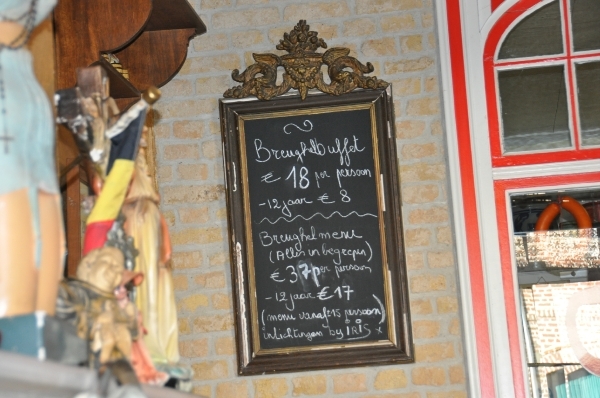 Breughelbuffet
€ 18 per persoon
-12 jaar € 8
Breughelmenu
(Alles inbegrepen)
€ 37 per persoon
-12 jaar €17
(menu vanaf 15 persoon)
inlichtingen by IRIS x